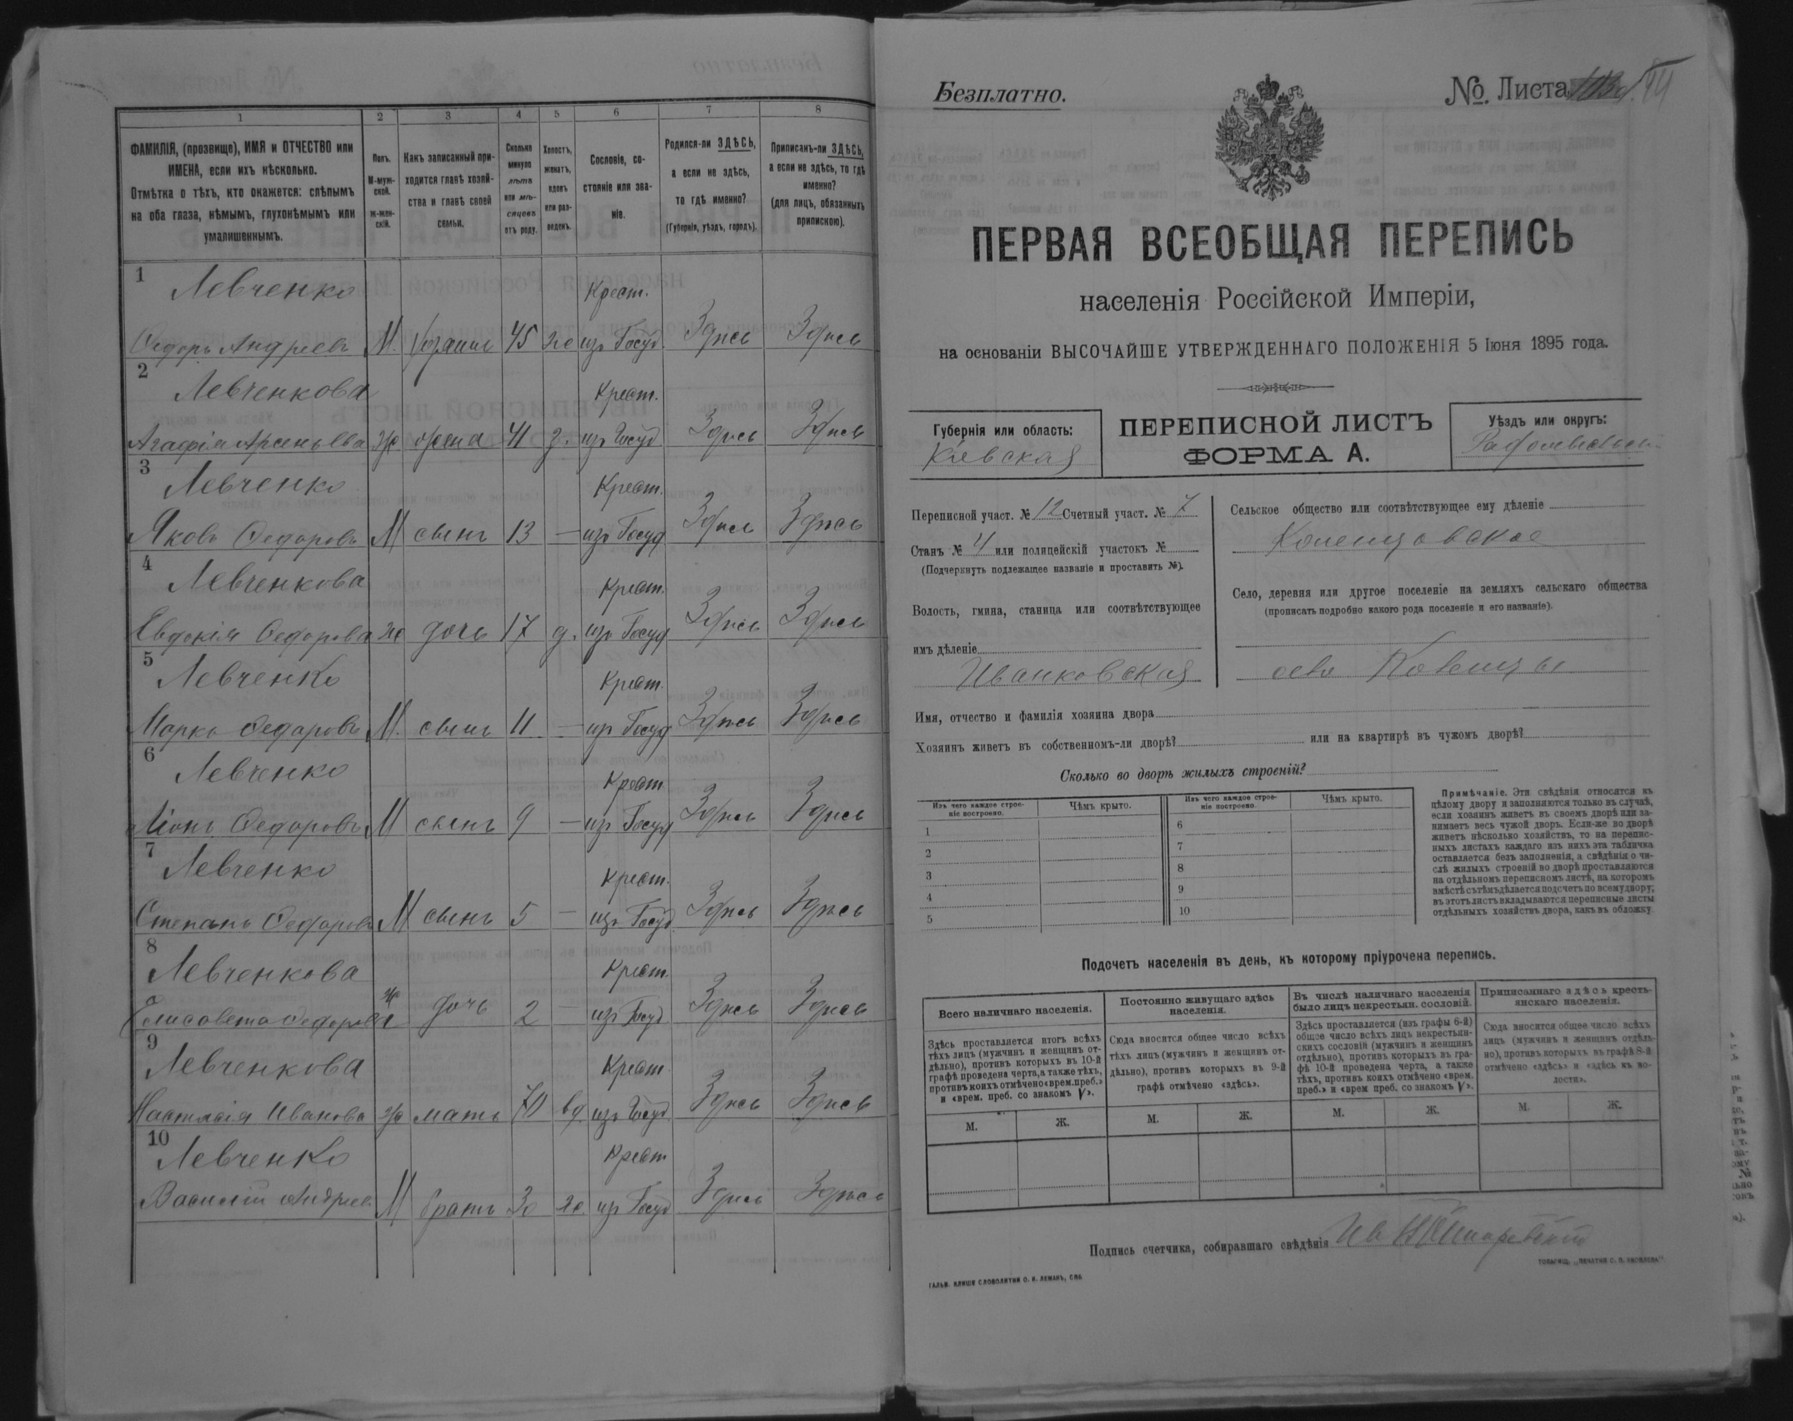 1 2 3 4 5 6 7 8
ФАМИЛІЯ, (прозвище), ИМЯ и ОТЧЕСТВО или
ИМЕНА, если ихъ нѣсколько.
Отмѣтка о тѣхъ, кто окажется: слѣпымъ
на оба глаза, нѣмымъ, глухонѣмымъ или
умалишеннымъ.
Полъ.
М-муж-
ской.
Ж-жен-
скій.
Какъ записанный при-
ходится главѣ хозяй-
ства и главѣ своей
семьи.
Сколько
минуло
лѣтъ
или мѣ-
сяцевъ
отъ роду.
Холостъ,
женатъ,
вдовъ
или раз-
веденъ.
Сословіе, со-
стояніе или зва-
ніе.
Родился-ли ЗДѢСЬ,
а если не здѣсь,
то гдѣ именно?
(Губернія, уѣздъ, городъ).
Приписанъ-ли ЗДѢСЬ,
а если не здѣсь, то гдѣ
именно?
(для лицъ, обязанныхъ
припискою).
1
Левченко Крест.
Ѳедоръ Андреевъ М. хозяинъ 45 же изъ Госуд Здѣсь Здѣсь
2
Левченкова Крест.
Агафія Арсеньева Ж жена 41 з. изъ Госуд Здѣсь Здѣсь
3
Левченко Крест.
Яковъ Ѳедоровъ М сынъ 13 — изъ Госуд Здѣсь Здѣсь
4
Левченкова Крест.
Евдокія Ѳедорова Ж дочь 17 д. изъ Госуд Здѣсь Здѣсь
5
Левченко Крест.
Марко Ѳедоровъ М. сынъ 11 — изъ Госуд Здѣсь Здѣсь
6
Левченко Крест.
Ѳедоровъ М сынъ 9 — изъ Госуд Здѣсь Здѣсь
7
Левченко Крест.
Степанъ Ѳедоровъ М сынъ 5 — изъ Госуд Здѣсь Здѣсь
8
Левченкова Крест.
Елисавета Ѳедорова Ж дочь 2 — изъ Госуд Здѣсь Здѣсь
9
Левченкова Крест.
Настасія Иванова Ж мать 70 вд. изъ Госуд Здѣсь Здѣсь
10
Левченко Крест
Василій Андреев М братъ 30 же. изъ Госуд Здѣсь Здѣсь
Безплатно.
№. Листа
ПЕРВАЯ ВСЕОБЩАЯ ПЕРЕПИСЬ
населенія Россійской Имперіи,
на основаніи ВЫСОЧАЙШЕ УТВЕРЖДЕННАГО ПОЛОЖЕНІЯ 5 Іюня 1895 года.
Губернія или область:
Кіевская
ПЕРЕПИСНОЙ ЛИСТЪ
ФОРМА А.
Уѣздъ или округъ:
Радомысльскій
Переписной участ. № 12 Счетный участ. № 7
Станъ № 4 или полицейскій участокъ №
(Подчеркнуть подлежащее названіе и проставить №).
Волость, гмина, станица или соотвѣтствующее
имъ дѣленіе
Иванковская
Сельское общество или соотвѣтствующее ему дѣленіе
Село, деревня или другое поселеніе на земляхъ сельскаго общества
(прописать подробно какого рода поселеніе и его названіе).
Имя, отчество и фамилія хозяина двора
Хозяинъ живетъ въ собственномъ-ли дворѣ? или на квартирѣ въ чужомъ дворѣ?
Сколько во дворѣ жилыхъ строеній?
Изъ чего каждое строе-
ніе построено.
Чѣмъ крыто.
Изъ чего каждое строе-
ніе построено.
Чѣмъ крыто.
1 6
2 7
3 8
4 9
5 10
Примѣчаніе. Эти свѣдѣнія относятся къ
цѣлому двору и заполняются только въ случаѣ,
если хозяинъ живетъ въ своемъ дворѣ или за-
нимаетъ весь чужой дворъ. Если-же во дворѣ
живетъ нѣсколько хозяйствъ, то на перепис-
ныхъ листахъ каждаго изъ нихъ эта табличка
оставляется безъ заполненія, а свѣдѣнія о чи-
слѣ жилыхъ строеній во дворѣ проставляются
на отдѣльномъ переписномъ листѣ, на которомъ
вмѣстѣ съ тѣмъ дѣлается подсчетъ по всему двору;
въ этотъ листъ вкладываются переписные листы
отдѣльныхъ хозяйствъ двора, какъ въ обложку.
Подсчетъ населенія въ день, къ которому пріурочена перепись.
Всего наличнаго населенія.
Здѣсь проставляется итогъ всѣхъ
тѣхъ лицъ (мужчинъ и женщинъ от-
дѣльно), противъ которыхъ въ 10-й
графѣ проведена черта, а также тѣхъ,
противъ коихъ отмѣчено «врем. преб.»
и «врем. преб. со знакомъ V».
М. Ж.
Постоянно живущаго здѣсь
населенія.
Сюда вносится общее число всѣхъ
тѣхъ лицъ (мужчинъ и женщинъ от-
дѣльно), противъ которыхъ въ 9-й
графѣ отмѣчено «здѣсь».
М. Ж.
Въ числѣ наличнаго населенія
было лицъ некрестьян. сословій.
Здѣсь проставляется (изъ графы 6-й)
общее число всѣхъ лицъ некрестьян-
скихъ сословій (мужчинъ и женщинъ
отдѣльно), противъ которыхъ въ гра-
фѣ 10-й проведена черта, а также
тѣхъ, противъ коихъ отмѣчено «врем.
преб.» и «врем. преб. со знакомъ V».
М. Ж.
Приписаннаго здѣсь кресть-
янскаго населенія.
Сюда вносится общее число всѣхъ
лицъ (мужчинъ и женщинъ отдѣль-
но), противъ которыхъ въ графѣ 8-й
отмѣчено «здѣсь» и «здѣсь въ во-
лости».
М. Ж.
Подпись счетчика, собиравшаго свѣдѣнія
ГАЛЬВ. КЛИШЕ СЛОВОЛИТНИ О. И. ЛЕМАНЪ, СПБ.